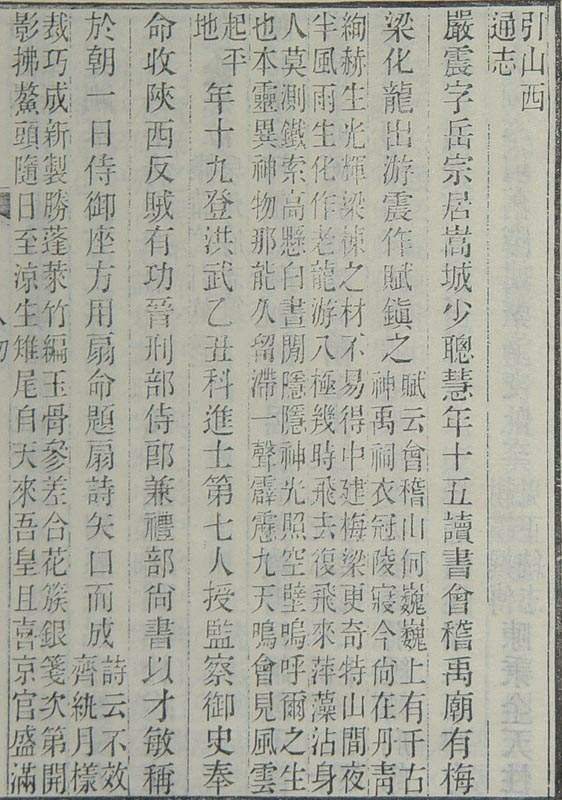 引山西
通志
嚴震字岳宗居嵩城少聰慧年十五讀書會稽禹廟有梅
梁化龍出游震作賦鎮之
賦云會稽山何巍巍上有千古
神禹祠衣冠陵寢今尙在丹靑
絢赫生光輝梁棟之材不易得中建梅梁更奇特山間夜
半風雨生化作老龍游八極幾時飛去復飛來萍藻沾身
人莫測鐵索高懸白晝閒隱隱神光照空壁嗚呼爾之生
也本靈異神物那能久留滯一聲霹靂九天鳴會見風雲
起平
地
年十九登洪武乙丑科進士第七人授監察御史奉
命收陝西反賊有功晉刑部侍郎兼禮部尙書以才敏稱
於朝一日侍御座方用扇命題扇詩矢口而成
詩云不效
齊紈月樣
裁巧成新製勝蓬萊竹編玉骨參差合花簇銀箋次第開
影拂鰲頭隨日至涼生雉尾自天來吾皇且喜京官盛滿